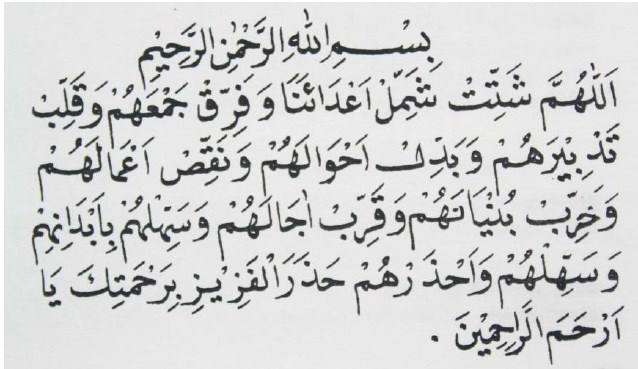 بِسْمِ اللهِ الرَّحْمٰنِ الرَّحِيْمِ
اَللّٰهُمَّ شَتِّتْ شَمِّلْ اَعْدَائَنَا وَفَرِّقْ جَمْعَهُمْ وَقَلِّبْ
تَدْبِيْرَهُمْ وَبَدِلْ اَحْوَالَهُمْ وَنَقِّصْ اَعْمَالَهُمْ
وَخَرِّبْ بُنْيَانَهُمْ وَقَرِّبْ اٰجَالَهُمْ وَسَهِّلْهُمْ بِاَبْدَانِهِمْ
وَسَهِّلْهُمْ وَاَحْذَرْهُمْ حَذَرَ الْفَزِيْزِ بِرَحْمَتِكَ يَا
اَرْحَمَ الرَّاحِمِيْنَ .